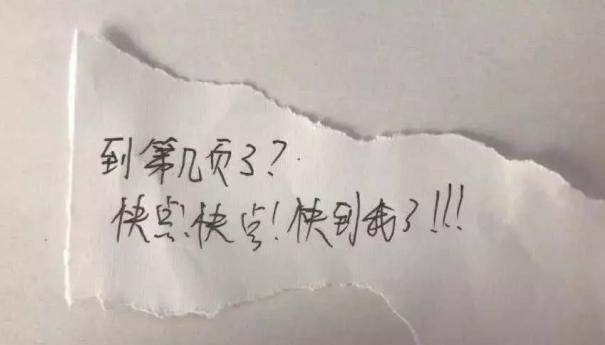 到第几页了?
快点!快点!快到我了!!!